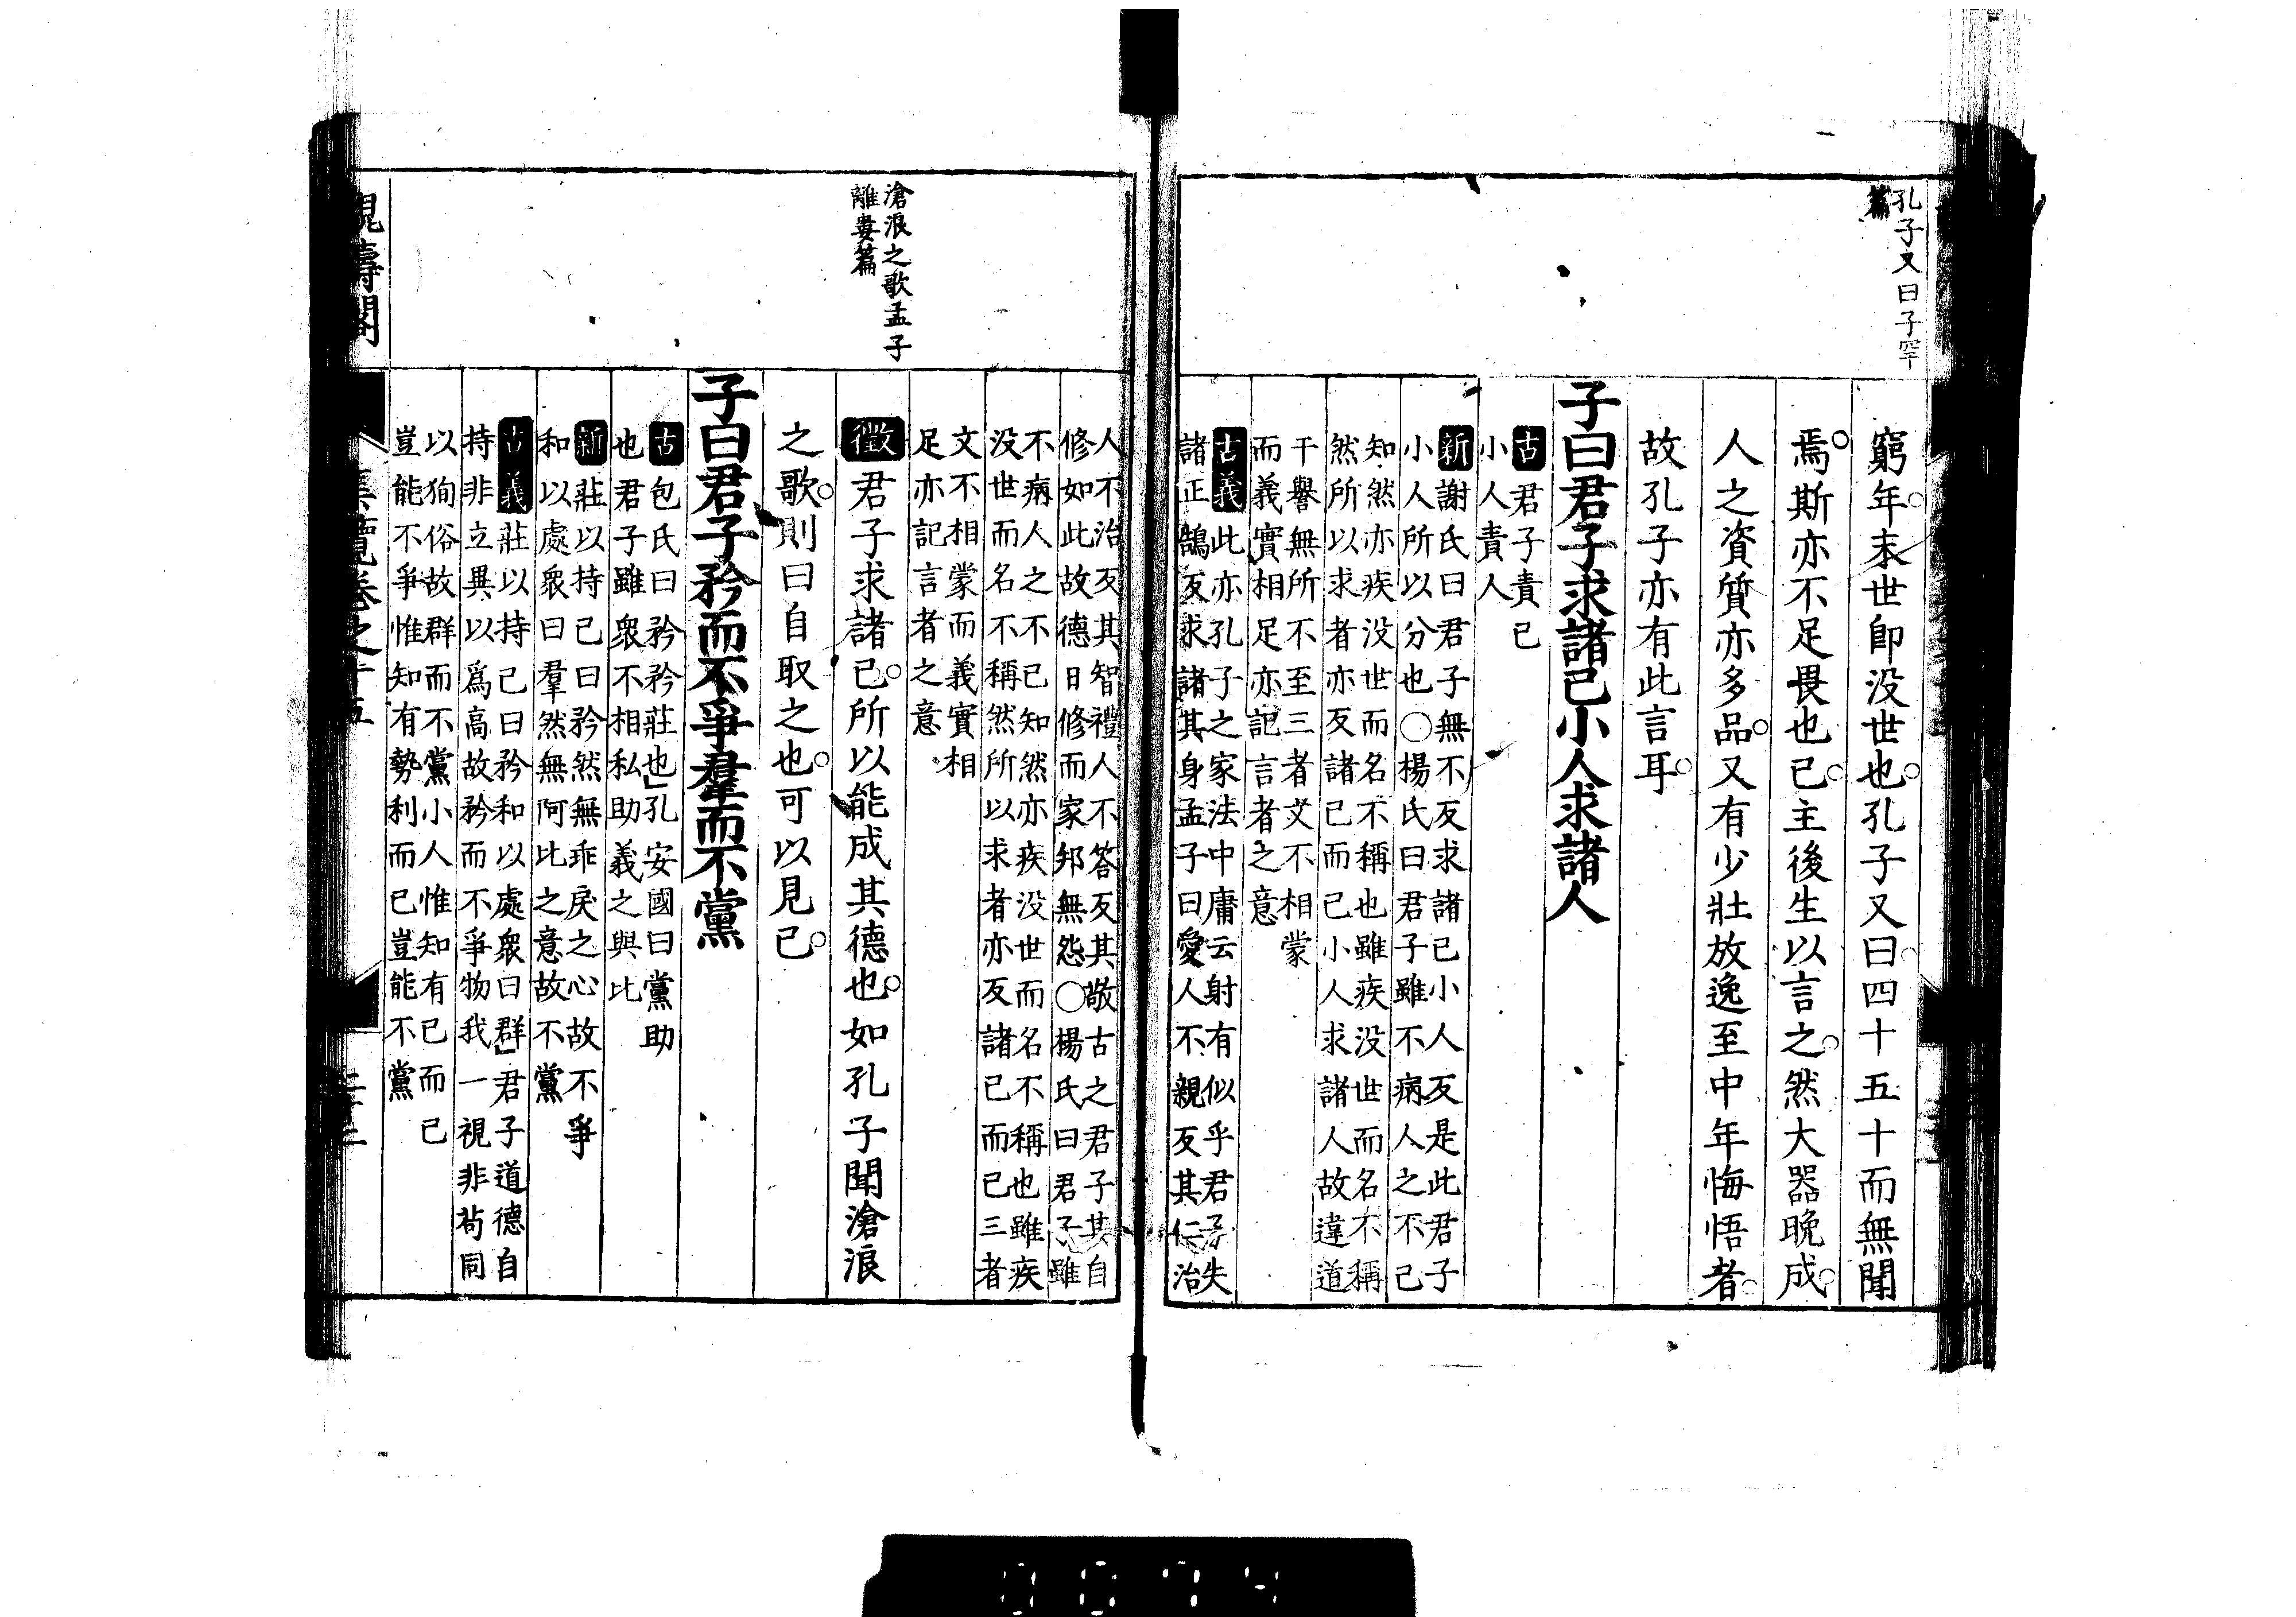 孔子又曰子罕
篇
窮年末世卽没世也孔子又曰四十五十而無聞
焉斯亦不足畏也已主後生以言之然大器晩成
人之資質亦多品又有少壯放逸至中年悔悟者
故孔子亦有此言耳
子曰君子求諸己小人求諸人
古君子責己
小人責人
新謝氏曰君子無不反求諸己小人反是此君子
小人所以分也○楊氏曰君子雖不病人之不己
知然亦疾没世而名不稱也雖疾没世而名不稱
然所以求者亦反諸己而已小人求諸人故違道
干譽無所不至三者文不相蒙
而義實相足亦記言者之意
古義此亦孔子之家法中庸云射有似乎君子失
諸正鵠反求諸其身孟子曰愛人不親反其仁治
人不治反其智禮人不答反其敬古之君子其自
修如此故德日修而家邦無怨○楊氏曰君子雖
不病人之不己知然亦疾没世而名不稱也雖疾
没世而名不稱然所以求者亦反諸己而已三者
文不相蒙而義實相
足亦記言者之意
滄浪之歌孟子
離婁篇
徵君子求諸己所以能成其德也如孔子聞滄浪
之歌則曰自取之也可以見已
子曰君子矜而不爭羣而不黨
古包氏曰矜矜莊也孔安國曰黨助
也君子雖衆不相私助義之與比
新莊以持己曰矜然無乖戾之心故不爭
和以處衆曰羣然無阿比之意故不黨
古義莊以持己曰矜和以處衆曰群君子道德自
持非立異以爲高故矜而不爭物我一視非苟同
以狥俗故群而不黨小人惟知有己而已
豈能不爭惟知有勢利而已豈能不黨
覽卷之十五